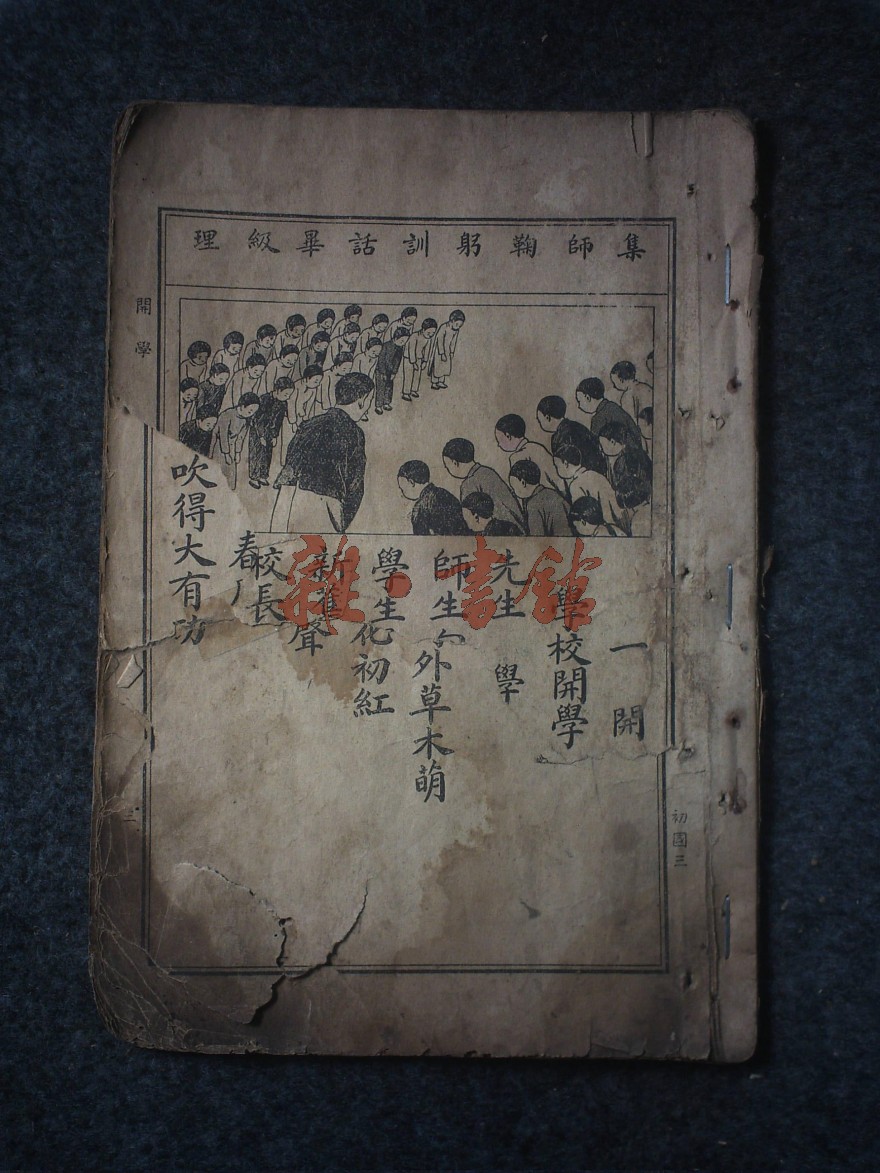 集師鞠躬訓話畢級理
開學
一開
學校開學
先生
學
師生
外草木萌
學生
初紅
新
聲
校長
春
吹得大有功
初國三
三
雜·書館